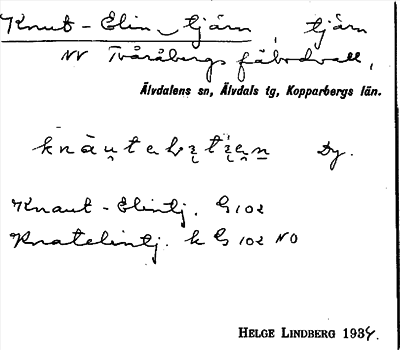 Knut-Elin-tjärn, tjärn
NV Tvåråbergs fäbodvall,
Älvdalens sn, Älvdals tg, Kopparbergs län.
Dy.
Knaut-Elintj. G 102
Knatelintj. k G 102 NO
HELGE LINDBERG 1934.